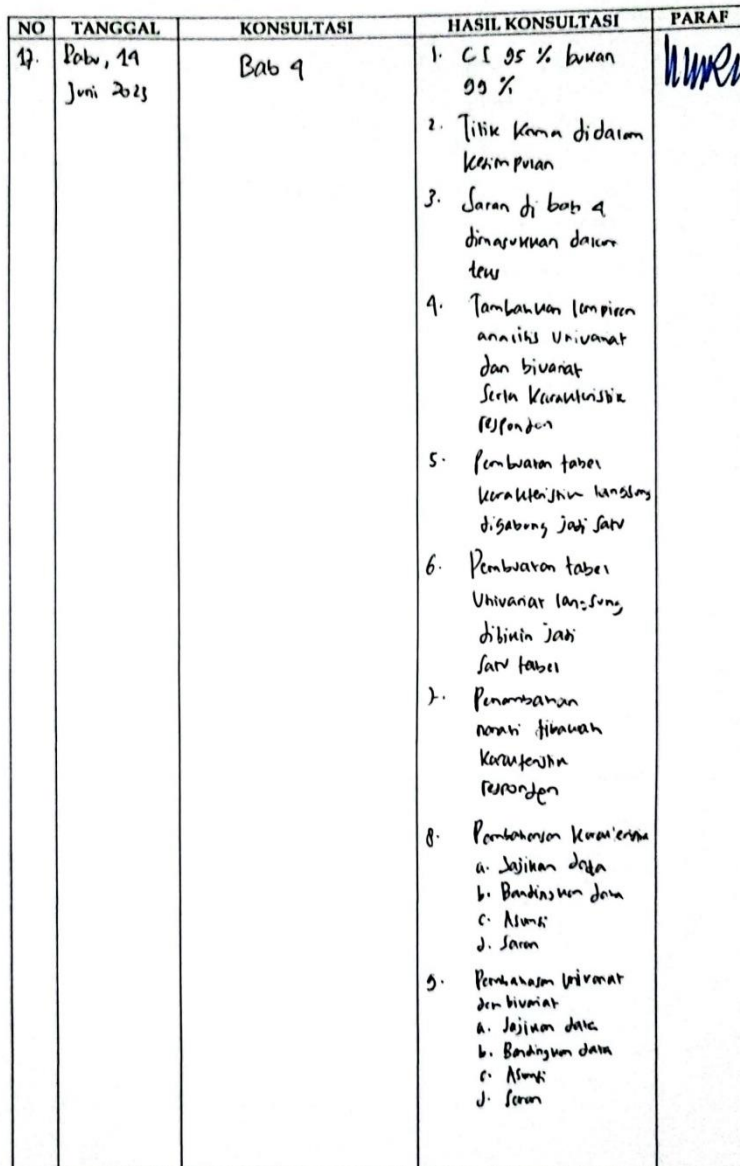 NO TANGGAL KONSULTASI HASIL KONSULTASI PARAF
17. Rabu, 14 Juni 2023
Bab 4
1. CI 95 % bukan
99 %
2. Titik koma didalam
kesimpulan
3. Saran di bab 4
dimasukkan dalam
teks
4. Tambahkan lampiran
analisis Univariat
dan bivariat
Serta Karakteristik
responden
5. Pembuatan tabel
karakteristik langsung
digabung jadi satu
6. Pembuatan tabel
Univariat langsung
dibikin jadi
satu tabel
7. Penambahan
narasi dibawah
karakteristik
responden
8. Pembahasan karakteristik
a. Sajikan data
b. Bandingkan data
c. Asumsi
d. Saran
9. Pembahasan Univariat
dan bivariat
a. Sajikan data
b. Bandingkan data
c. Asumsi
d. Saran